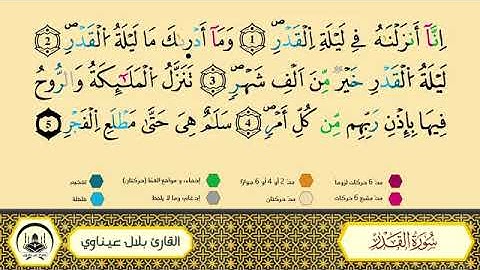 إِنَّآ أَنزَلْنَٰهُ فِے لَيْلَةِ اِ۬لْقَدْرِۖ ١ وَمَآ أَدْر۪ىٰكَ مَا لَيْلَةُ اُ۬لْقَدْرِۖ ٢
لَيْلَةُ اُ۬لْقَدْرِ خَيْرٞ مِّنَ اَلْفِ شَهْرٖۖ ٣ تَنَزَّلُ اُ۬لْمَلَٰٓئِكَةُ وَالرُّوحُ
فِيهَا بِإِذْنِ رَبِّهِم مِّن كُلِّ أَمْرٖۖ ٤ سَلَٰمٌ هِيَ حَتَّىٰ مَطْلَعِ اِ۬لْفَجْرِۖ ٥
مد: 6 حركات لزوما مد: 2 أو 4 أو 6 جوازا إخفاء، و مواقع الغنّة (حركتان) تفخيم
مد: مشبع 6 حركات مد: حركتان إدغام، وما لا يلفظ قلقلة
سُورَةُ الْقَدْرِ القارئ بلال عيناوي